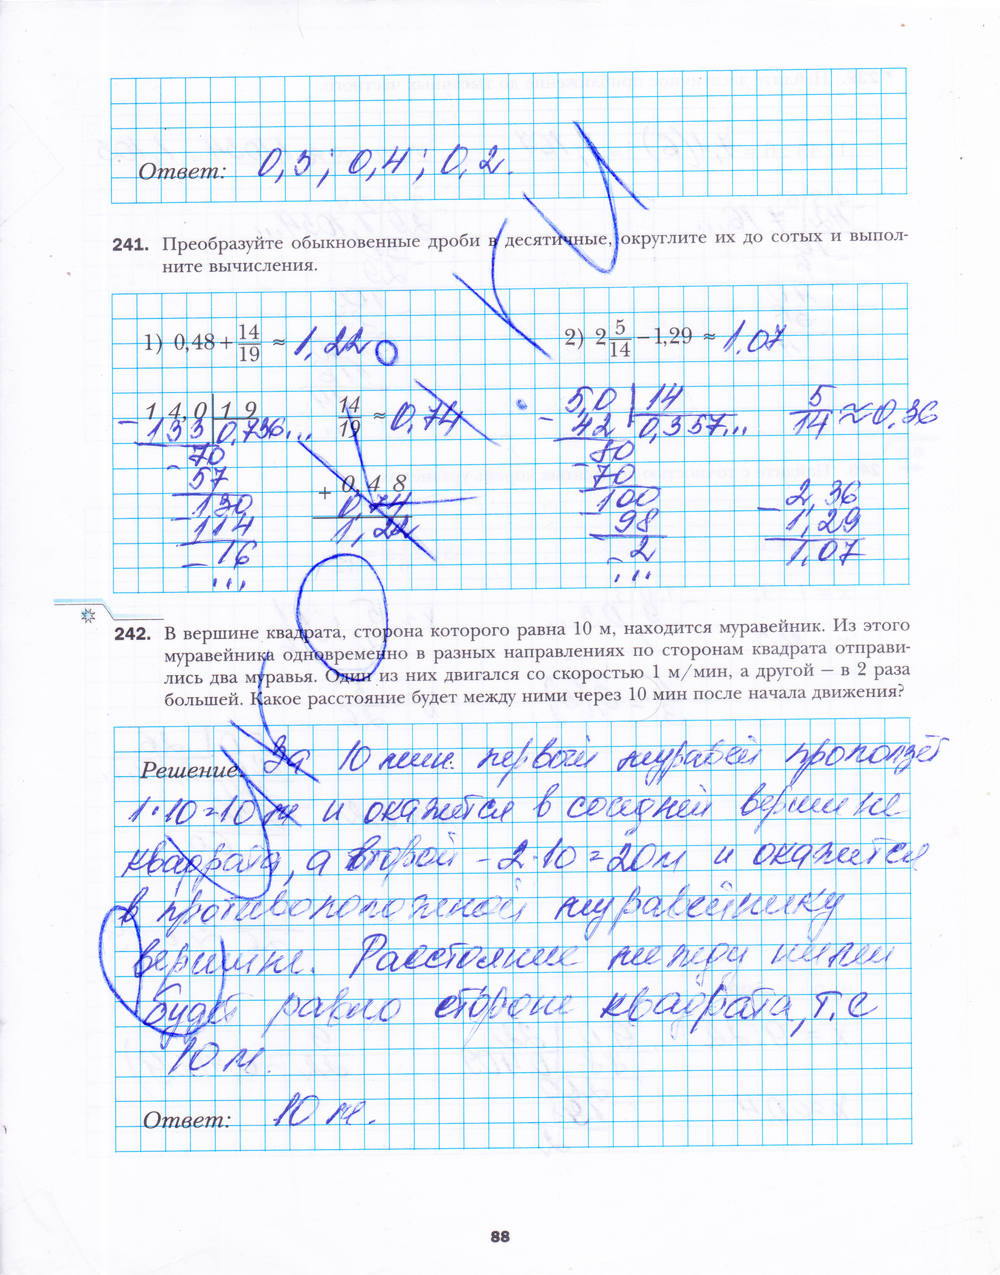 Ответ: 0,3; 0,4; 0,2.
241. Преобразуйте обыкновенные дроби в десятичные, округлите их до сотых и выпол-
ните вычисления.
1) 0,48 + 14/19 ≈ 1,22
2) 2 5/14 − 1,29 ≈ 1,07
14,0 | 19
− 133 | 0,736...
70
− 57
130
− 114
− 16
...
14/19 ≈ 0,74
0,48
+ 0,74
1,22
5,0 | 14
− 42 | 0,357...
80
− 70
100
− 98
2
...
5/14 ≈ 0,36
2,36
− 1,29
1,07
242. В вершине квадрата, сторона которого равна 10 м, находится муравейник. Из этого
муравейника одновременно в разных направлениях по сторонам квадрата отправи-
лись два муравья. Один из них двигался со скоростью 1 м/мин, а другой — в 2 раза
большей. Какое расстояние будет между ними через 10 мин после начала движения?
Решение. За 10 мин. первый муравей проползёт
1·10=10 м и окажется в соседней вершине
квадрата, а второй – 2·10=20м и окажется
в противоположной муравейнику
вершине. Расстояние между ними
будет равно стороне квадрата, т.е
10 м.
Ответ: 10 м.
88